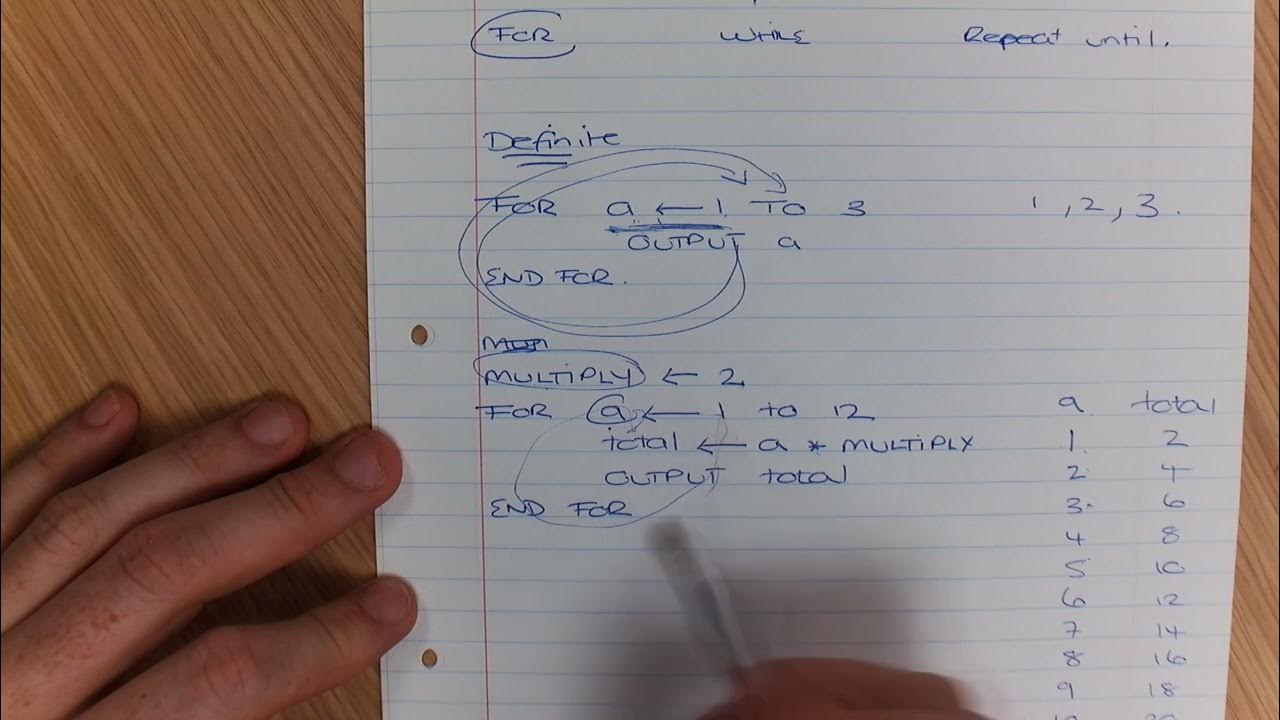 FOR While Repeat until.
Definite
FOR a ← 1 TO 3 1, 2, 3.
OUTPUT a
END FOR.
MULTIPLY ← 2
FOR a ← 1 to 12 a total
total ← a * MULTIPLY 1. 2
OUTPUT total 2 4
END FOR 3. 6
4 8
5 10
6 12
7 14
8 16
9 18